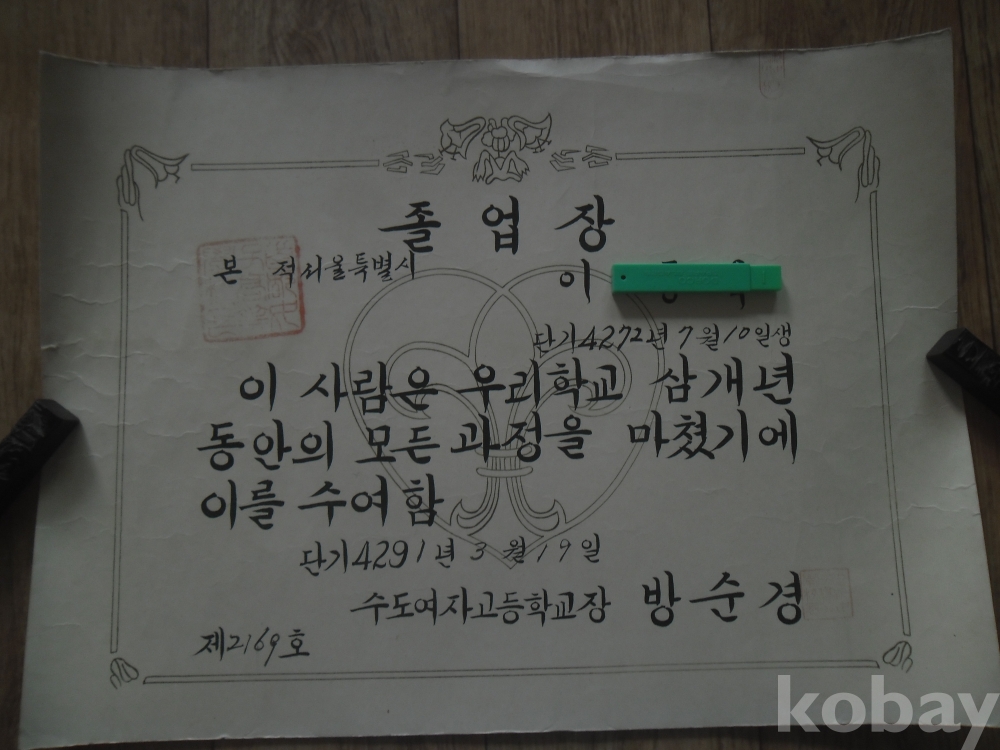 졸업장
본 적 서울특별시
이
단기4272년 7월10일생
이 사람은 우리학교 삼개년
동안의 모든 과정을 마쳤기에
이를 수여함
단기4291년 3월19일
수도여자고등학교장 방순경
제2169호
kobay